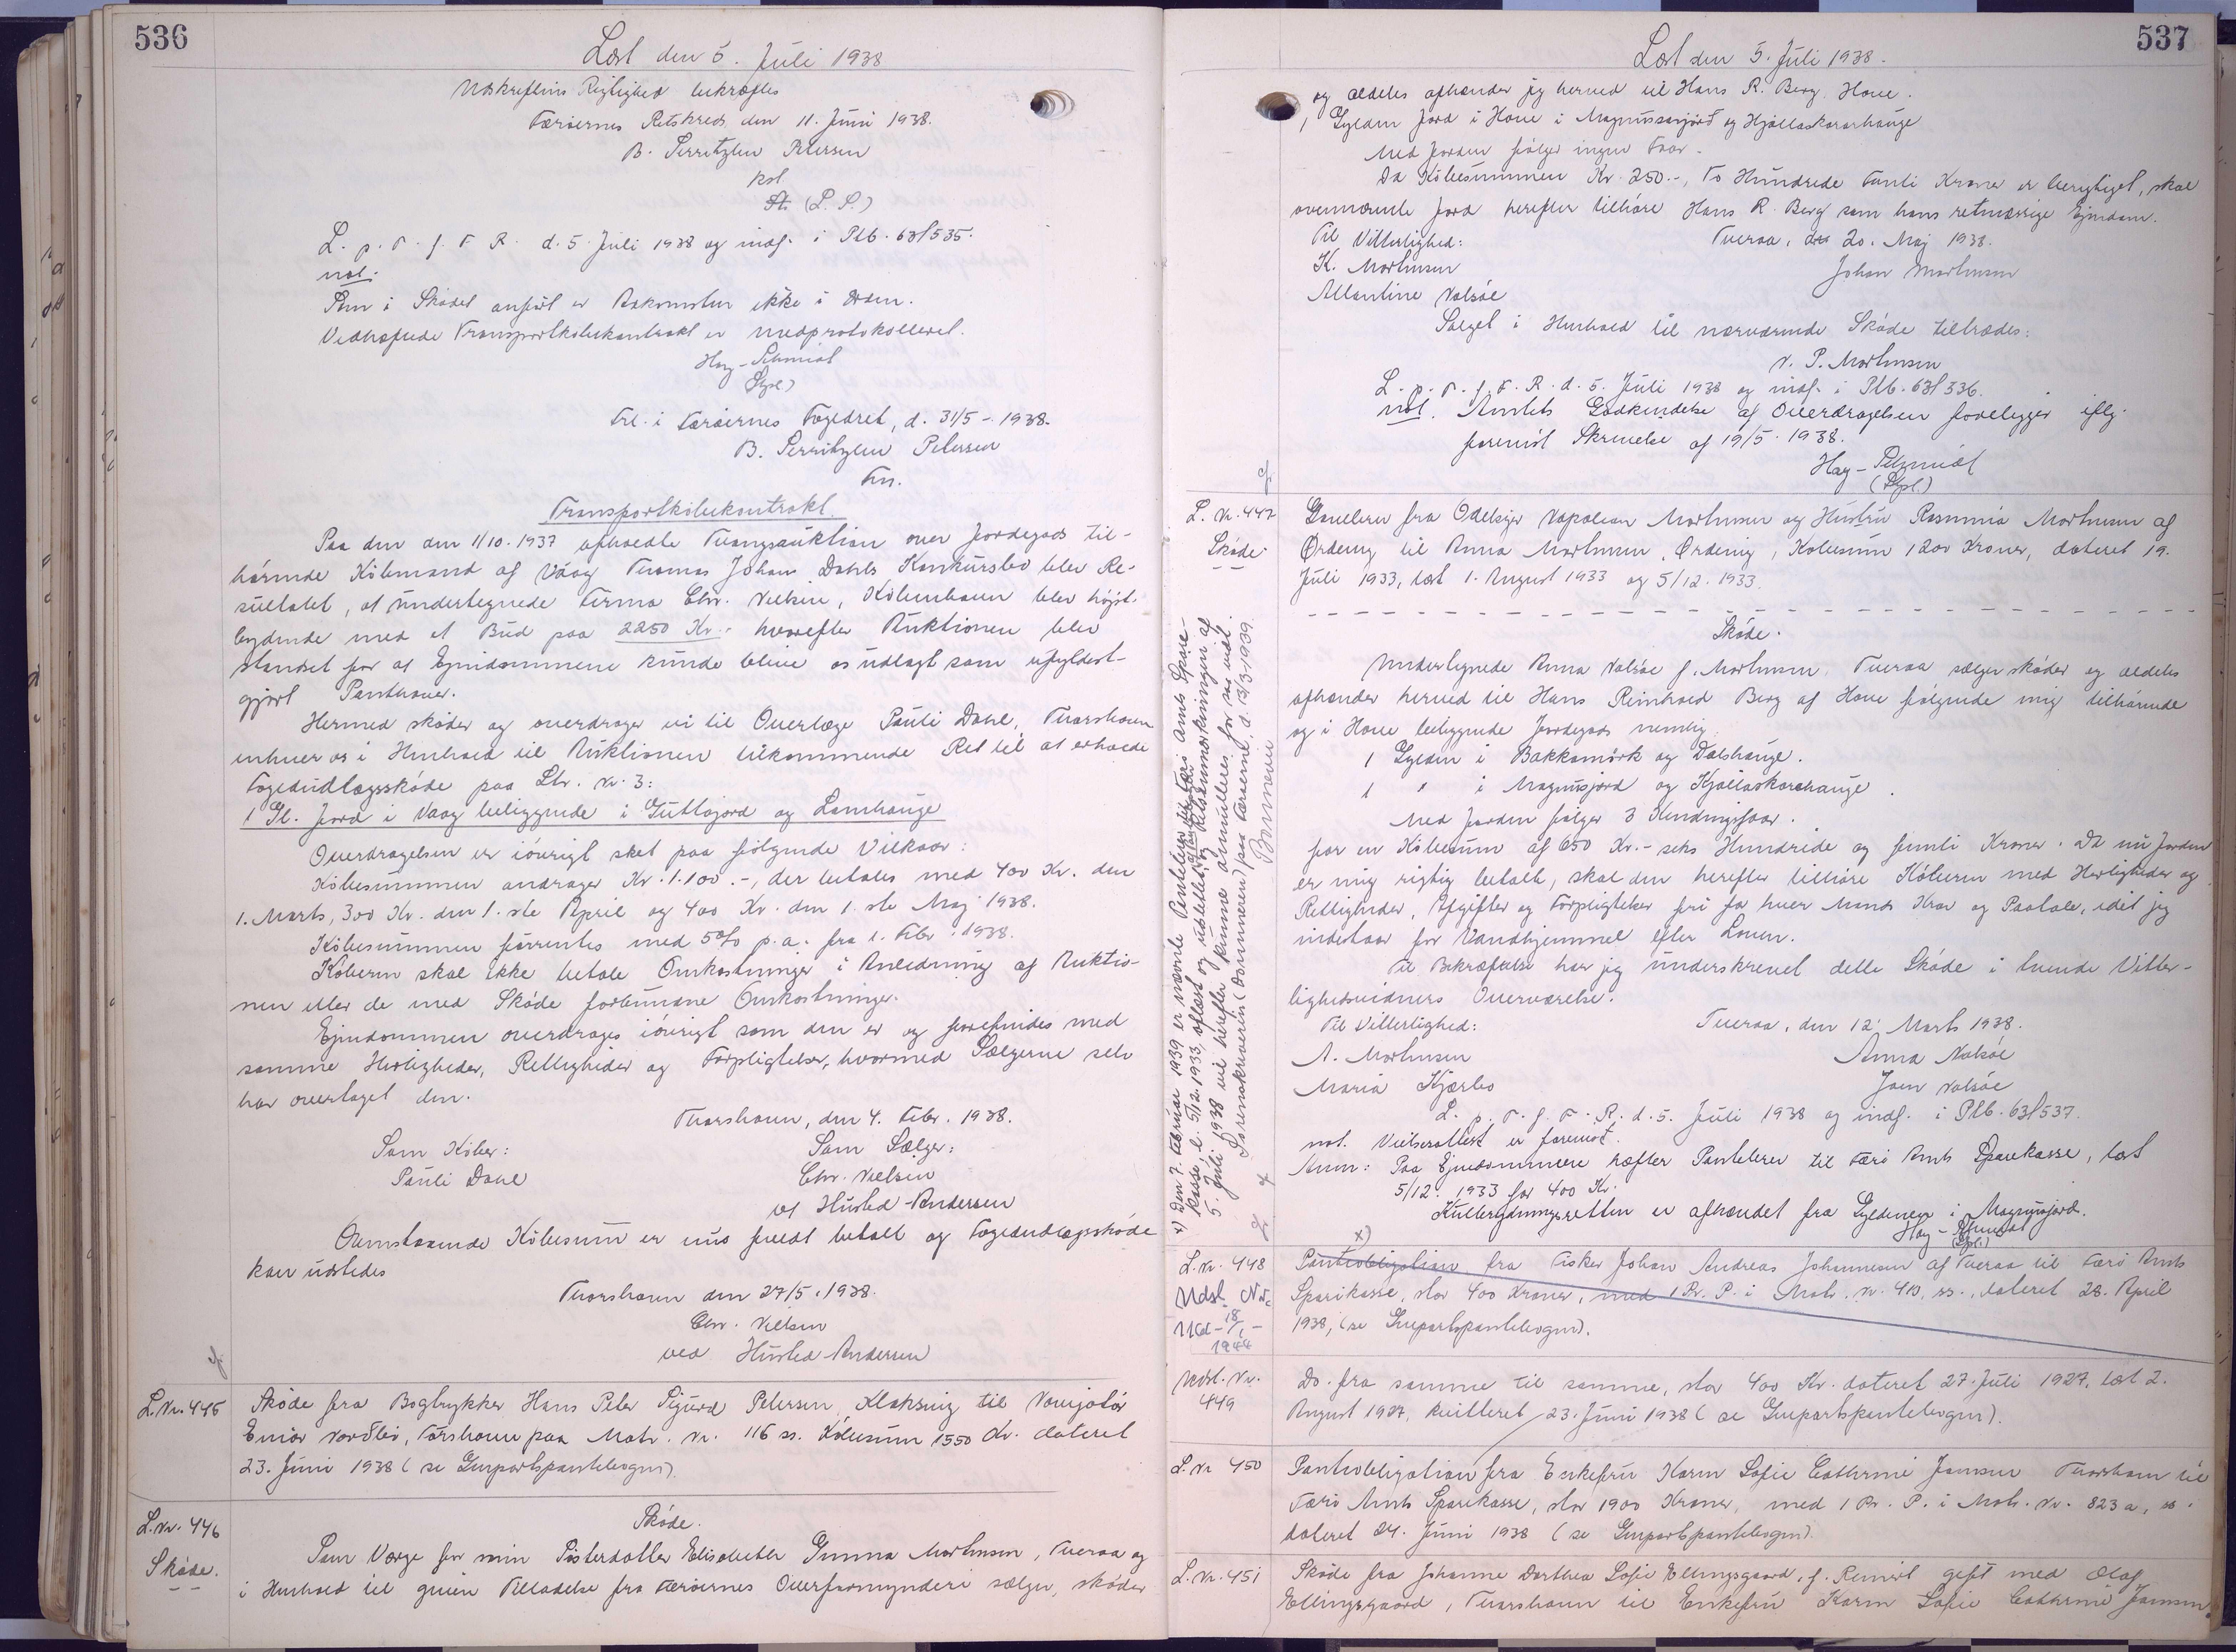 536
Læst den 5. Juli 1938
Udskriftens Rigtighed bekræftes
Færøernes Retskreds den 11. Juni 1938.
B. Serritzlew Petersen
kst
St. (L. S.)
L. p. T. f. F. R. d. 5. Juli 1938 og indf. i Ptb. 63f535.
not.
Som i Skødet anført er Adkomsten ikke i Orden.
Vedhæftede Transportkøbekontrakt er medprotokolleret.
Hay-Schmidt
(Spl)
Frl. i Færøernes Fogedret, d. 31/5-1938.
B. Serritzlew Petersen
Fm.
Transportkøbekontrakt.
Paa den den 1/10.1937 afholdte Tvangsauktion over Jordegods til-
hørende Købmand af Vaag Thomas Johan Dahls Konkursbo blev Re-
sultatet, at undertegnede Firma Chr. Nielsen, København blev højst-
bydende med et Bud paa 2250 Kr. hvorefter Auktionen blev
standset for at Ejendommene kunde blive os udlagt som ufyldest-
gjort Panthaver.
Hermed skøder og overdrager vi til Overlæge Pauli Dahl, Thorshavn
enhver os i Henhold til Auktionen tilkommende Ret til at erholde
Fogedudlægsskøde paa Lb. Nr. 3:
1 Gl. Jord i Vaag beliggende i Guttajord og Lamhauge
Overdragelsen er iøvrigt sket paa følgende Vilkaar:
Købesummen andrager Kr. 1.100.-, der betales med 400 Kr. den
1. Marts, 300 Kr. den 1.ste April og 400 Kr. den 1.ste Maj 1938.
Købesummen forrentes med 5% p.a. fra 1. Febr. 1938.
Køberen skal ikke betale Omkostninger i Anledning af Auktio-
nen eller de med Skøde forbundne Omkostninger.
Ejendommen overdrages iøvrigt som den er og forefindes med
samme Herligheder, Rettigheder og Forpligtelser, hvormed Sælgerne selv
har overtaget den.
Thorshavn, den 4. Febr. 1938.
Som Køber: Som Sælger:
Pauli Dahl Chr. Nielsen
v/ Husted-Andersen
Ovenstaaende Købesum er nu fuldt betalt og Fogedudlægsskøde
kan udstedes
Thorshavn den 27/5. 1938.
Chr. Nielsen
ved Husted-Andersen
L.Nr. 445 Skøde fra Bogtrykker Hans Peter Sigurd Petersen, Klaksvig til
Einar Nordbø, Torshavn paa Matr. Nr. 116 ss. Købesum 1550 Kr. dateret
23. Juni 1938 (se Genpartspantebogen).
L.Nr. 446 Skøde.
Skøde. Som Værge for min Søsterdatter Elisabeth Gunna Mortensen, Tveraa og
i Henhold til given Tilladelse fra Færøernes Overformynderi sælger, skøder
537
Læst den 5. Juli 1938.
og aldeles afhænder jeg herved til Hans R. Berg, Hove.
1 Gylden Jord i Hove i Magnussarjørd og Hjallaskorarhauge
Med Jorden følger ingen Faar.
Da Købesummen Kr. 250.-, To Hundrede Femti Kroner er berigtiget, skal
ovennævnte Jord herefter tilhøre Hans R. Berg som hans retmæssige Ejendom.
Til Vitterlighed: Tveraa, den 20. Maj 1938.
K. Mortensen Johan Mortensen
Allantine Nolsøe
Salget i Henhold til nærværende Skøde tiltrædes:
N. P. Mortensen
L. p. T. f. F. R. d. 5. Juli 1938 og indf. i Ptb. 63f536.
not. Amtets Godkendelse af Overdragelsen foreligger iflg.
forevist Skrivelse af 19/5. 1938.
Hay-Schmidt
(Spl.)
L. Nr. 447 Gavebrev fra Odelsejer Napoleon Mortensen og Hustru Rasmina Mortensen af
Skøde. Ørdevig til Anna Mortensen, Ørdevig, Købesum 1200 Kroner, dateret 19.
Juli 1933, læst 1. August 1933 og 5/12. 1933.
Skøde.
Undertegnede Anna Nolsøe f. Mortensen, Tveraa sælger skøder og aldeles
afhænder herved til Hans Reinhold Berg af Hove følgende mig tilhørende
og i Hove beliggende Jordegods nemlig
1 Gylden i Bakkamørk og Dalshauge.
1 " i Magnusjørd og Kjallaskorarhauge.
Med Jorden følger 3 Kendingsfaar.
for en Købesum af 650 Kr.- seks Hundrede og femti Kroner. Da nu Jorden
er mig rigtig betalt, skal den herefter tilhøre Køberen med Herligheder og
Rettigheder, Afgifter og Forpligtelser fri for hver Mands Krav og Paatale, idet jeg
indestaar for Vandhjemmel efter Loven.
Til Bekræftelse har jeg underskrevet dette Skøde i tvende Vitter-
lighedsvidners Overværelse.
Til Vitterlighed: Tveraa, den 12. Marts 1938.
N. Mortensen Anna Nolsøe
Maria Kjærbo Joen Nolsøe
L. p. T. f. F. R. d. 5. Juli 1938 og indf. i Ptb. 63f537.
not. Vielsesattest er forevist.
Anm: Paa Ejendommene hæfter Pantebrev til Færø Amts Sparekasse, læst
5/12. 1933 for 400 Kr.
Kulbrydningsretten er afhændet fra Gyldenen i Magnusjørd.
Hay-Schmidt
(Spl.)
x) Den 7. Februar 1939 er nævnte Pantebrev til Færø Amts Spare-
kasse, l. 5/12. 1933, aflæst og udslettet, og Retsanmærkningen af
5. Juli 1938 vil herefter kunne annulleres for
Sorenskriveren (Dommeren) paa Færøerne, d. 3/3-1939.
Bornerie
x)
L.Nr. 448 Pantobligation fra Fisker Johan Andreas Johannesen af Tveraa til Færø Amts
Udsl. Nr. Sparekasse, stor 400 Kroner, med 1 Pr. P. i Matr. Nr. 413, ss., dateret 28. April
18/1- 1938, (se Genpartspantebogen).
1944
Udsl. Nr. Do. fra samme til samme, stor 400 Kr. dateret 27. Juli 1927, læst 2.
449 August 1927, kvitteret 23. Juni 1938 (se Genpartspantebogen).
L.Nr 450 Pantobligation fra Enkefru Karen Sofie Cathrine Jensen Thorshavn til
Færø Amts Sparekasse, stor 1900 Kroner, med 1 Pr. P. i Matr. Nr. 823a, ss.
dateret 24. Juni 1938 (se Genpartspantebogen).
L.Nr. 451 Skøde fra Johanne Dorthea Sofie Ellingsgaard, f. Reinert gift med Olaf
Ellingsgaard, Thorshavn til Enkefru Karen Sofie Cathrine Jensen